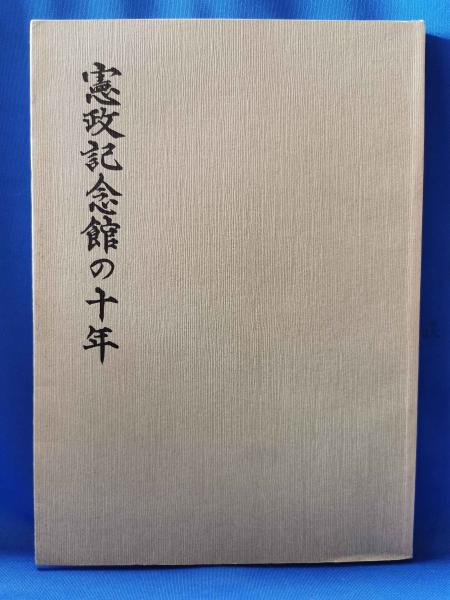 憲政記念館の十年